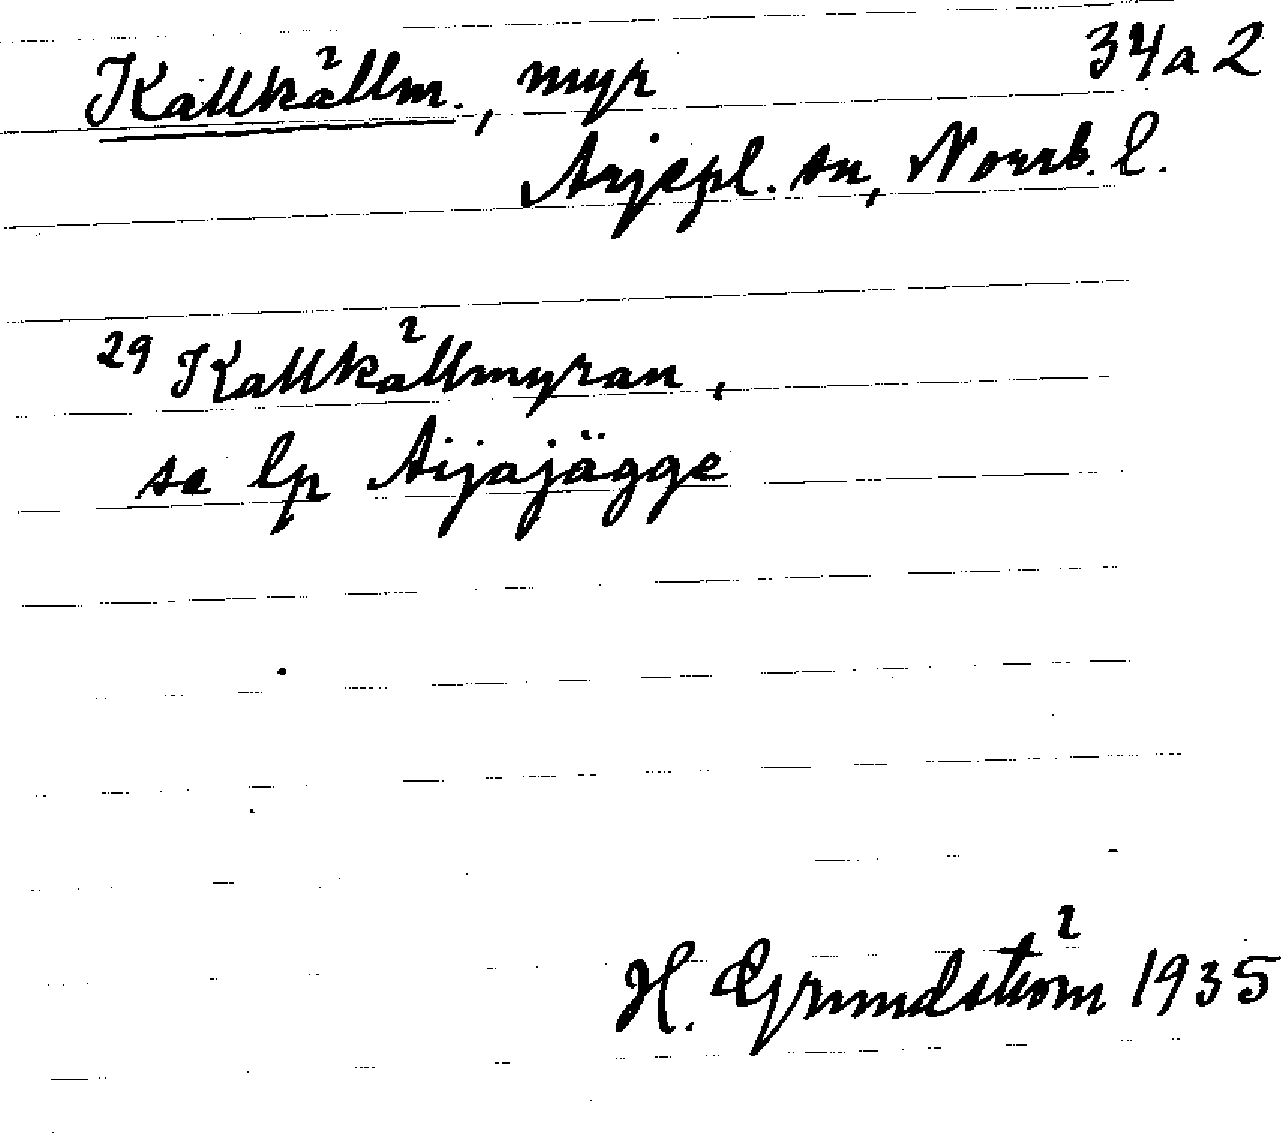 Kallkällm., myr 34a2
Arjepl. sn, Norrb. l.
29 Kallkällmyran,
se lp Aijajägge
H. Grundström 1935